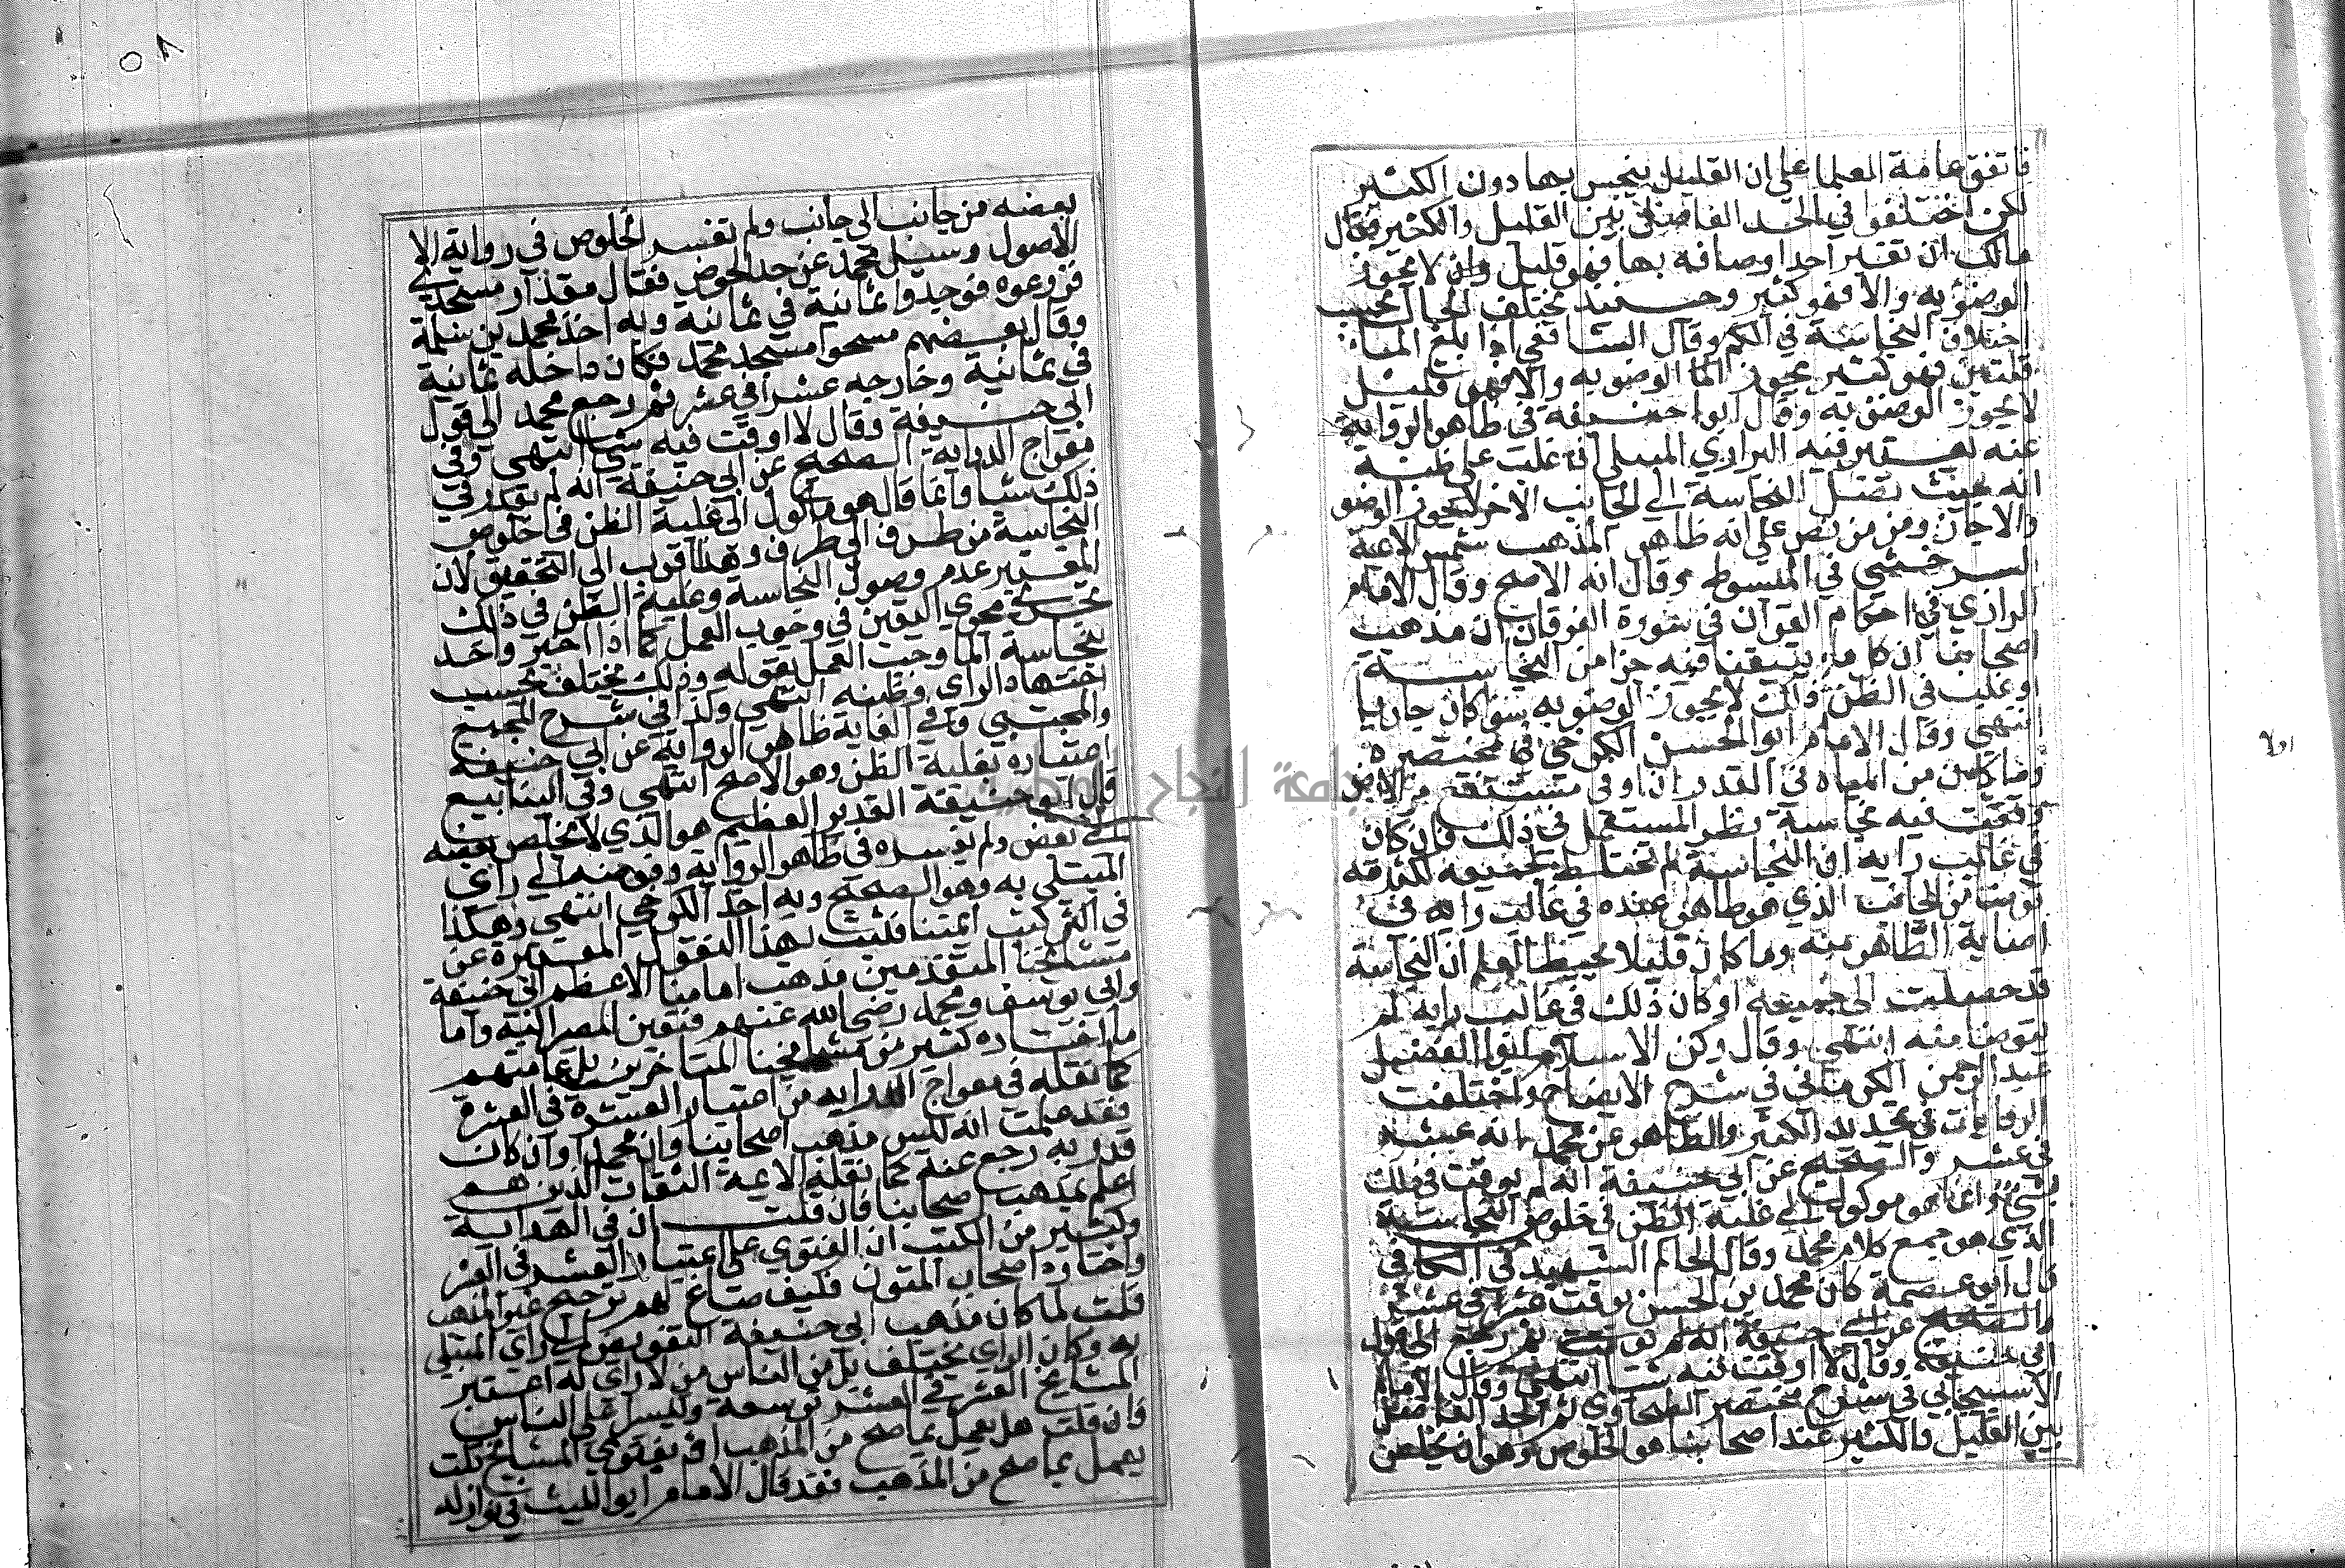 فاتفق عامة العلما علي ان القليل ينجس بها دون الكثير
لكن اختلفوا في الحد الفاصل بين القليل والكثير فقال
مالك ان تغير احد اوصافه بها فهو قليل وان لا يجوز
الوضو به والا فهو كثير وحينئذ يختلف الحال بحسب
اختلاف النجاسة في الكم وقال الشافعي اذا بلغ الما
قلتين فهو كثير يجوز الوضو به والا فهو قليل
لا يجوز الوضو به وقال ابوا حنيفة في ظاهر الرواية
عنه يعتبر فيه اكبر راي المبتلي ان غلب علي ظنه
انه بحيث تصل النجاسة الي الجانب الاخر لا يجوز الوضو
والا جاز ومن نص علي انه ظاهر المذهب شمس الايمة
السرخسي في المبسوط وقال انه الاصح وقال الامام
الرازي في احكام القران في سورة الفرقان ان مذهب
اصحابنا ان كل ما تيقنا فيه جزا من النجاسة
او غلب في الظن ذلك لا يجوز الوضو به سوا كان جاريا
انتهي وقال الامام ابو الحسن الكرخي في مختصره
وما كان من المياه في الغدران او في مستنقع من الارض
وقعت فيه نجاسة نظر المستعمل في ذلك فان كان
في غالب رايه ان النجاسة لم تختلط بجميعه لكثرته
توضا من الجانب الذي هو طاهر عنده في غالب رايه في
اصابة الطاهر منه وما كان قليلا يحيط العلم ان النجاسة
قد حصلت الي جميعه او كان ذلك في غالب رايه لم
يتوضا منه انتهي وقال ركن الاسلام ابوا الفضل
عبد الرحمن الكرماني في شرح الايضاح واختلفت
الروايات في تحديد الكثير والظاهر عن محمد انه عشر
في عشر والصحيح عن ابي حنيفة انه لم يوقت في ذلك
بشي وانما هو موكول الي غلبة الظن في خلوص النجاسة
الذي هو جمع كلام محمد وقال الحاكم الشهيد في الكافي
قال ابو عصمة كان محمد بن الحسن يوقت عشرا في عشر
والصحيح عن ابي حنيفة انه لم يوقت ثم رجع الي قول
ابي حنيفة وقال لا اوقت فيه شيا انتهي وقال الامام
الاسبيجابي في شرح مختصر الطحاوي ثم الحد الفاصل
بين القليل والكثير عند اصحابنا هو الخلوص وهو ان يخلص
اولا
٥٨
بعضه من جانب الي جانب ولم تفسر الخلوص في رواية الا
الاصول وسيل محمد عن حد الحوض فقال مقدار مسجدي
فزرعوه فوجدوا ثمانية في ثمانية وبه اخذ محمد بن سلمة
وقال بعضهم مسحوا مسجد محمد فكان داخله ثمانية
في ثمانية وخارجه عشرا في عشر ثم رجع محمد الي قول
ابي حنيفة وقال لا اوقت فيه شيا انتهي وفي
معراج الدراية الصحيح عن ابي حنيفة انه لم يقدر في
ذلك شيا وانما قال هو موكول الي غلبة الظن في خلوص
النجاسة من طرف الي طرف وهذا اقرب الي التحقيق لان
المعتبر عدم وصول النجاسة وغلبة الظن في ذلك
تجري مجري اليقين في وجوب العمل كما اذا اخبر واحد
بنجاسة الما وجب العمل بقوله وذلك يختلف بحسب
اجتهاد الراي وظنه انتهي وكذا في شرح المجمع
والمجتبي وفي الغاية ظاهر الرواية عن ابي حنيفة
اعتباره بغلبة الظن وهو الاصح انتهي وفي الينابيع
قال ابو حنيفة الغدير العظيم هو الذي لا يخلص بعضه
الي بعض ولم يفسره في ظاهر الرواية وفوضه الي راي
المبتلي به وهو الصحيح وبه اخذ الكرخي انتهي وهكذا
في اكثر كتب ايمتنا فثبت بهذا النقول المعتبرة عن
مشايخنا المتقدمين مذهب امامنا الاعظم ابي حنيفة
وابي يوسف ومحمد رضي الله عنهم فتعين المصير اليه واما
ما اختاره كثير من مشايخنا المتاخرين بل عامتهم
كما نقله في معراج الدراية من اعتبار العشرة في العشرة
فقد علمت انه ليس مذهب اصحابنا وان محمدا وان كان
قدر به رجع عنه كما نقله الايمة الثقات الذين هم
اعلم بمذهب اصحابنا فان قلت ان في الهداية
وكثير من الكتب ان الفتوي علي اعتبار العشر في العشر
واختاره اصحاب المتون فكيف صاغ لهم ترجيح غير المذهب
قلت لما كان مذهب ابي حنيفة التفويض الي راي المبتلي
به وكان الراي يختلف بل من الناس من لا راي له اعتبر
المشايخ العشر في العشر توسعه وتيسرا علي الناس
فان قلت هل يعمل بما صح من المذهب او بفتوي المشايخ قلت
يعمل بما صح من المذهب فقد قال الامام ابوا الليث في نوازله
جامعة النجاح الوطنية